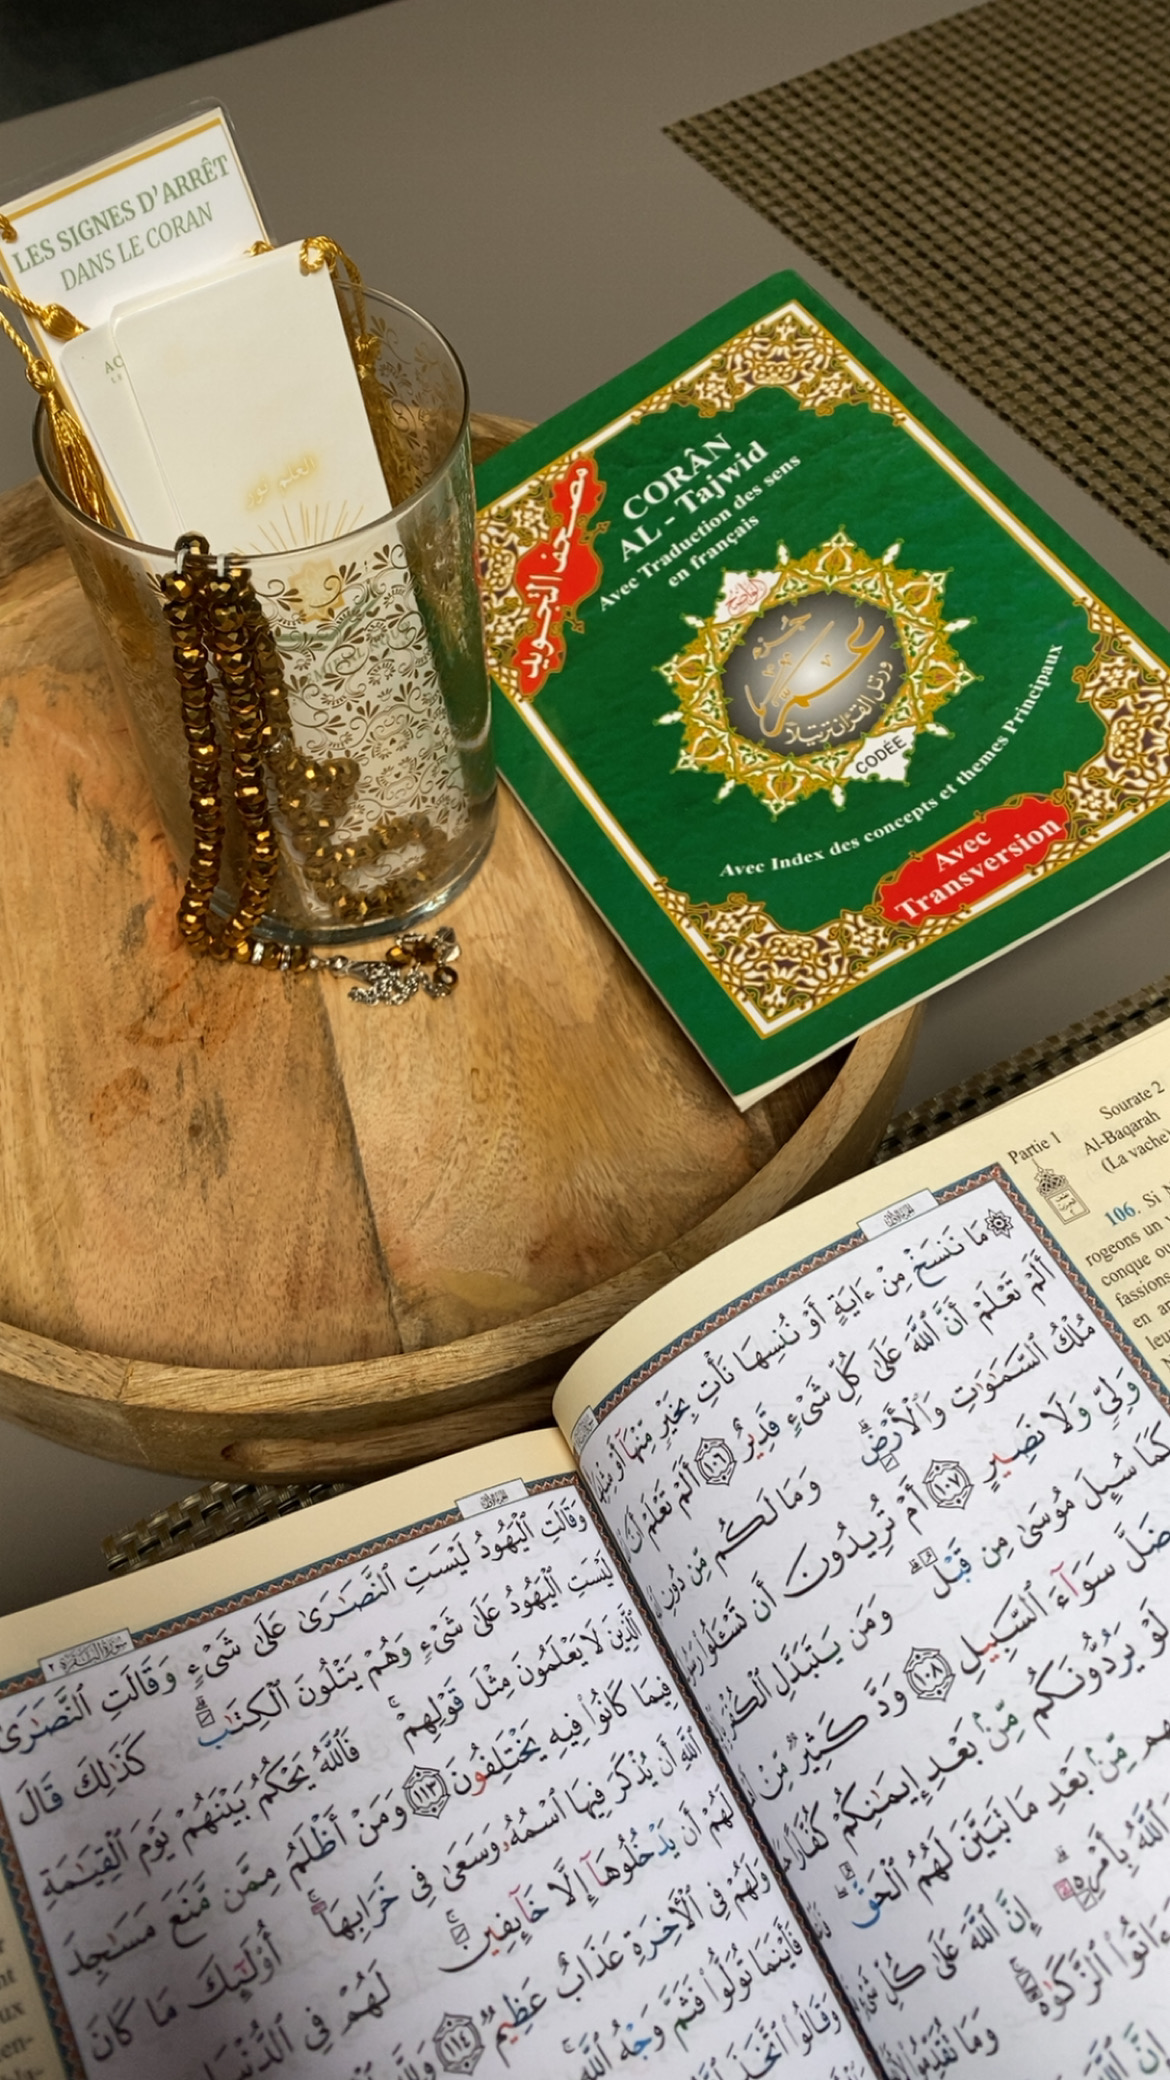 LES SIGNES D'ARRÊT
DANS LE CORAN
العلم نور
مصحف التجويد
CORÂN
AL - Tajwid
Avec Traduction des sens
en français
جزء
عم
ورتل القرآن ترتيلا
CODÉE
Avec Index des concepts et themes Principaux
Avec
Transversion
Partie 1
Sourate 2
Al-Baqarah
(La vache)
106. Si
rogeons un
conque
fassions
en
۞ مَا نَنسَخْ مِنْ ءَايَةٍ أَوْ نُنسِهَا نَأْتِ بِخَيْرٍ مِّنْهَآ أَوْ
أَلَمْ تَعْلَمْ أَنَّ ٱللَّهَ عَلَىٰ كُلِّ شَىْءٍ قَدِيرٌ ١٠٦ أَلَمْ تَعْلَمْ أَنَّ
مُلْكُ ٱلسَّمَٰوَٰتِ وَٱلْأَرْضِ وَمَا لَكُم مِّن دُونِ
وَلِىٍّ وَلَا نَصِيرٍ ١٠٧ أَمْ تُرِيدُونَ أَن تَسْـَٔلُوا۟
كَمَا سُئِلَ مُوسَىٰ مِن قَبْلُ وَمَن يَتَبَدَّلِ ٱلْكُفْرَ
ضَلَّ سَوَآءَ ٱلسَّبِيلِ ١٠٨ وَدَّ كَثِيرٌ مِّنْ
لَوْ يَرُدُّونَكُم مِّنۢ بَعْدِ إِيمَٰنِكُمْ كُفَّارًا
مِّنۢ بَعْدِ مَا تَبَيَّنَ لَهُمُ ٱلْحَقُّ
ٱللَّهُ بِأَمْرِهِۦٓ إِنَّ ٱللَّهَ عَلَىٰ كُلِّ
ٱلزَّكَوٰةَ وَمَا تُقَدِّمُوا۟
إِنَّ ٱللَّهَ
سورة البقرة ٢
وَقَالَتِ ٱلْيَهُودُ لَيْسَتِ ٱلنَّصَٰرَىٰ عَلَىٰ شَىْءٍ وَقَالَتِ ٱلنَّصَٰرَىٰ
لَيْسَتِ ٱلْيَهُودُ عَلَىٰ شَىْءٍ وَهُمْ يَتْلُونَ ٱلْكِتَٰبَ كَذَٰلِكَ قَالَ
ٱلَّذِينَ لَا يَعْلَمُونَ مِثْلَ قَوْلِهِمْ فَٱللَّهُ يَحْكُمُ بَيْنَهُمْ يَوْمَ ٱلْقِيَٰمَةِ
فِيمَا كَانُوا۟ فِيهِ يَخْتَلِفُونَ ١١٣ وَمَنْ أَظْلَمُ مِمَّن مَّنَعَ مَسَٰجِدَ
ٱللَّهِ أَن يُذْكَرَ فِيهَا ٱسْمُهُۥ وَسَعَىٰ فِى خَرَابِهَآ أُو۟لَٰٓئِكَ مَا كَانَ
لَهُمْ أَن يَدْخُلُوهَآ إِلَّا خَآئِفِينَ لَهُمْ فِى ٱلدُّنْيَا
وَلَهُمْ فِى ٱلْءَاخِرَةِ عَذَابٌ عَظِيمٌ ١١٤
فَأَيْنَمَا تُوَلُّوا۟ فَثَمَّ وَجْهُ ٱللَّهِ
وَقَالُوا۟ ٱتَّخَذَ